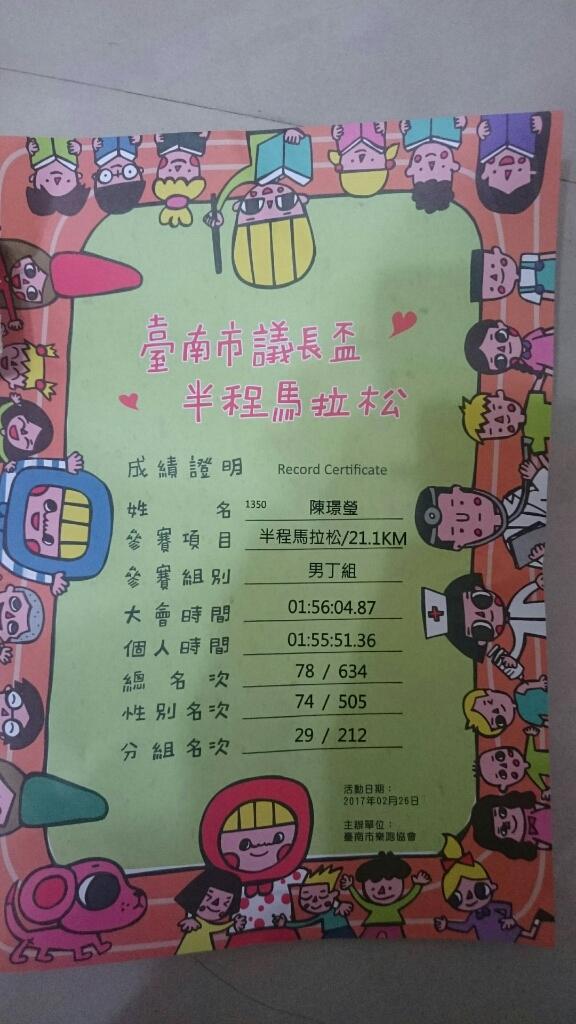 臺南市議長盃
半程馬拉松
成績證明 Record Certificate
姓名 1350 陳璟瑩
參賽項目 半程馬拉松/21.1KM
參賽組別 男丁組
大會時間 01:56:04.87
個人時間 01:55:51.36
總名次 78 / 634
性別名次 74 / 505
分組名次 29 / 212
活動日期：
2017年02月26日
主辦單位：
臺南市樂跑協會